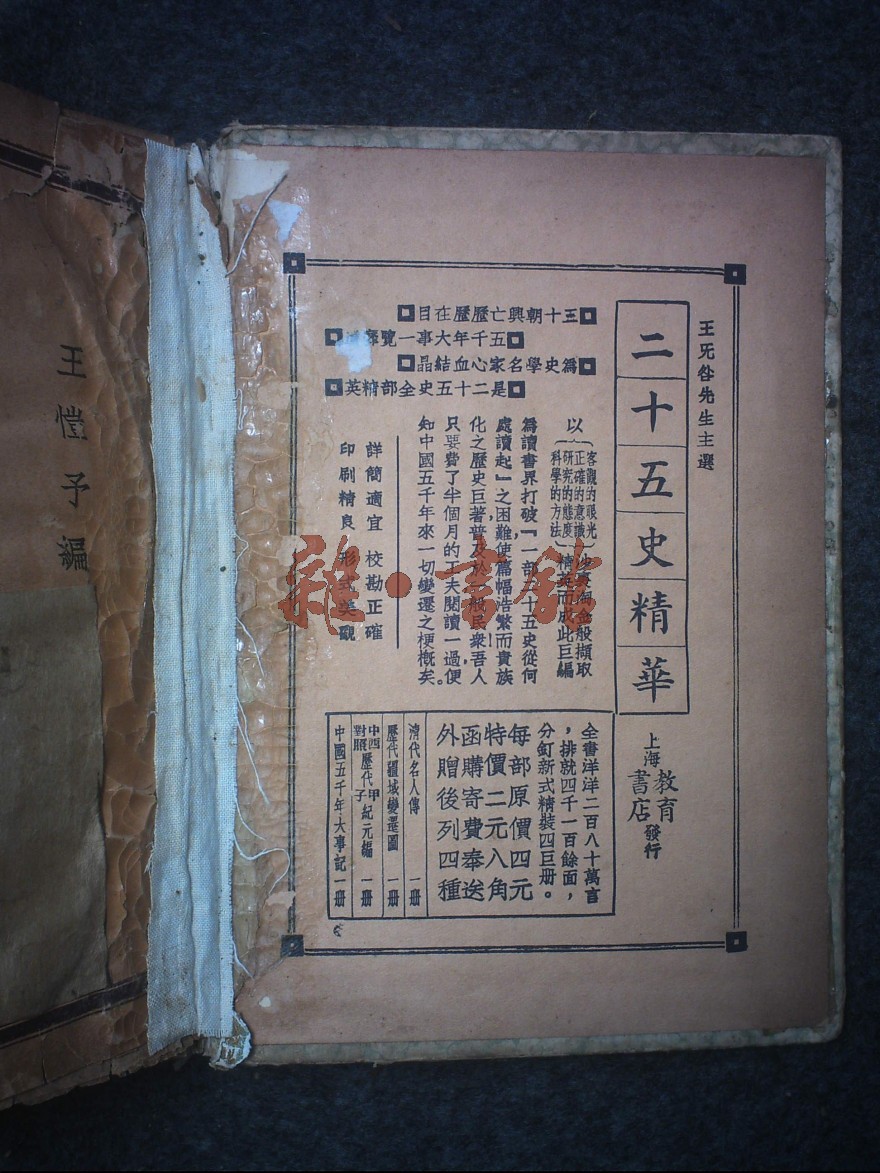 王无咎先生主選
二十五史精華
上海教育書店發行
三十朝興亡歷歷在目
五千年大事一覽
爲史學名家心血結晶
是二十五史全部精英
以
客觀的眼光
正確的意識
研究的態度
科學的方法
沙裏淘金般擷取
精英而成此巨編
爲讀書界打破『一部二十五史從何
處讀起』之困難使篇幅浩繁而貴族
化之歷史巨著普及於一般民衆吾人
只要費了半個月的工夫閱讀一過,便
知中國五千年來一切變遷之梗概矣。
詳簡適宜 校勘正確
印刷精良 形式美觀
全書洋洋二百八十萬言
,排就四千一百餘面,
分釘新式精裝四巨册。
每部原價四元
特價二元八角
函購寄費奉送
外贈後列四種
清代名人傳 一册
歷代疆域變遷圖 一册
中西對照歷代甲子紀元編 一册
中國五千年大事記 一册
王愷予編
雜·書館